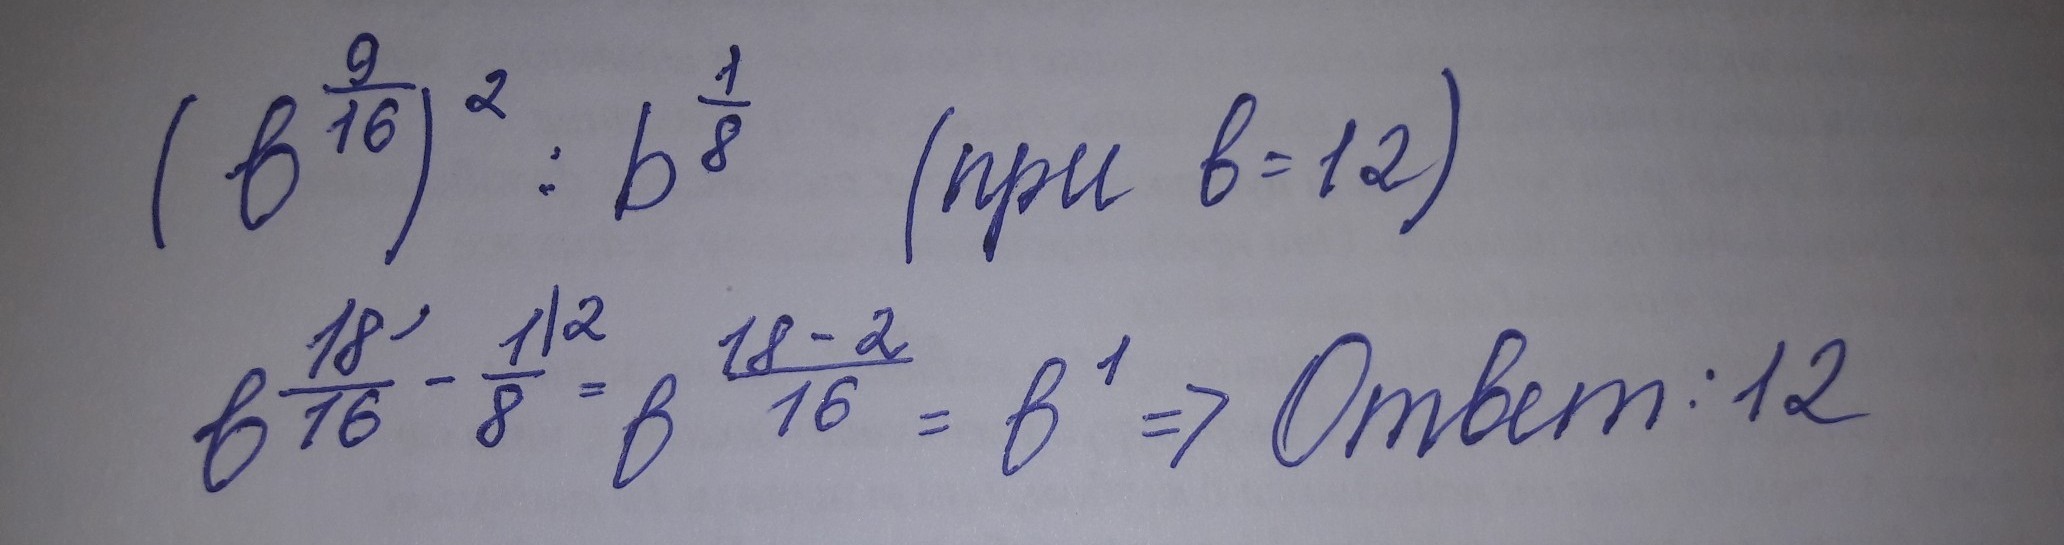 (b^{\frac{9}{16}})^2 : b^{\frac{1}{8}} (при b=12)
b^{\frac{18}{16} - \frac{1}{8}|2} = b^{\frac{18-2}{16}} = b^1 => Ответ: 12